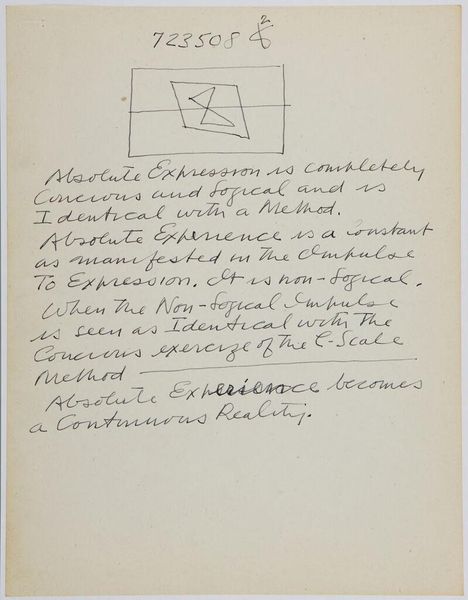 723508
2
Absolute Expression is completely
Concious and Logical and is
Identical with a Method.
Absolute Experience is a constant
as manifested in the Impulse
To Expression. It is non-Logical.
When the Non-Logical Impulse
is seen as Identical with the
Concious exercize of the C-Scale
Method
Absolute Experience becomes
a Continuous Reality.